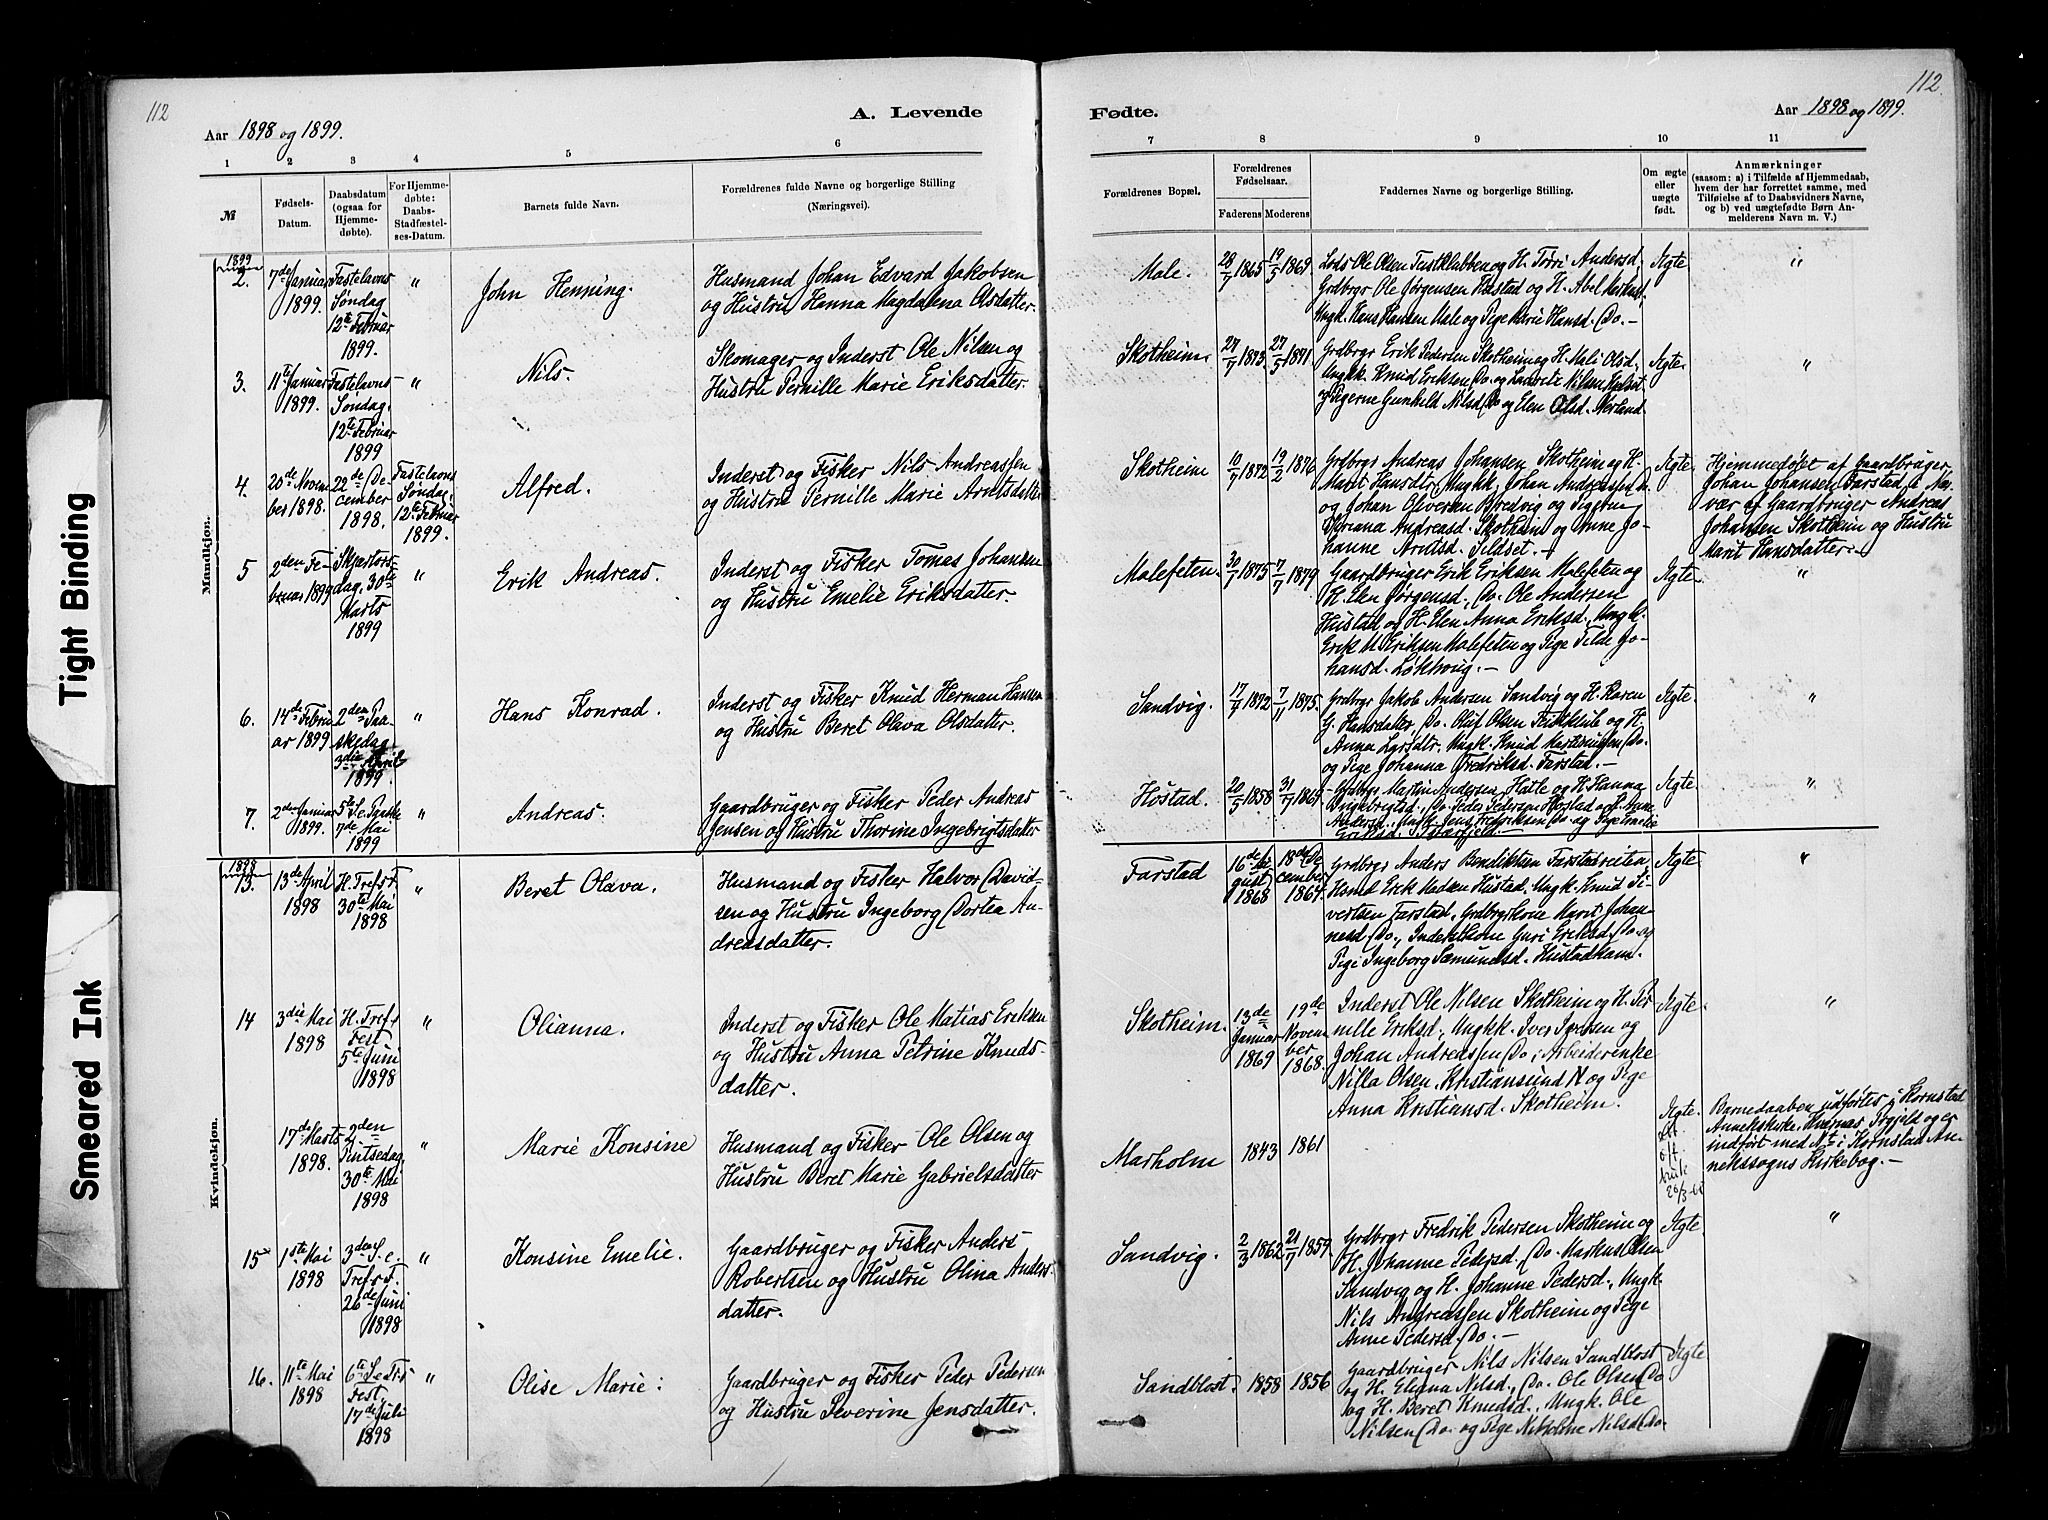 112
A. Levende
Aar 1898 og 1899.
1 2 3 4 5 6
№
Fødsels-
Datum.
Daabsdatum
(ogsaa for
Hjemme-
døbte).
For Hjemme-
døbte:
Daabs-
Stadfæstel-
ses-Datum.
Barnets fulde Navn.
Forældrenes fulde Navne og borgerlige Stilling
(Næringsvei).
Mandkjøn.
1899
2.
7de Januar
1899.
Fastelavns
Søndag
12te Februar
1899.
"
John Henning.
Husmand Johan Edvard Jakobsen
og Hustru Hanna Magdalena Olsdatter.
3.
11te Januar
1899.
Fastelavns-
Søndag.
12te Februar
1899
"
Nils.
Skomager og Inderst Ole Nilsen og
Hustru Pernille Marie Eriksdatter.
4.
20de Novem
ber 1898.
22de De-
cember
1898.
Fastelavns
Søndag.
12te Februar
1899.
Alfred.
Inderst og Fisker Nils Andreassen
og Hustru Pernille Marie Arntsdatter
5
2den Fe-
bruar 1899
Skjertors-
dag, 30te
Marts
1899
"
Erik Andreas.
Inderst og Fisker Tomas Johansen
og Hustru Emelie Eriksdatter.
6.
14de Febru
ar 1899
2den Paa-
skedag
3die April
1899.
"
Hans Konrad.
Inderst og Fisker Knud Herman Hansen
og Hustru Beret Olava Olsdatter.
7.
2den Januar
1899.
5te S.e. Paaske
7de Mai
1899
"
Andreas.
Gaardbruger og Fisker Peder Andreas
Jensen og Hustru Thorine Ingebrigtsdatter
Kvindekjøn.
1898
13.
13de April
1898
H. Tref. F.
30te Mai
1898
"
Beret Olava.
Husmand og Fisker Halvor David-
sen og Hustru Ingeborg Dortea An-
dreasdatter.
14
3die Mai
1898
H. Tref.s
Fest
5te Juni
1898
"
Olianna.
Inderst og Fisker Ole Matias Eriksen
og Hustru Anna Petrine Knuds-
datter.
17de Marts
1898.
2den
Pintsedag
30te Mai
1898
"
Marie Konsine
Husmand og Fisker Ole Olsen og
Hustru Beret Marie Gabrielsdatter
15
1ste Mai
1898
3den S. e.
Tref.s F.
26de Juni
1898
"
Konsine Emelie.
Gaardbruger og Fisker Anders
Robertsen og Hustru Olina Anders-
datter.
16.
11te Mai
1898
6te S.e Tr.s
Fest.
17de Juli
1898
"
Olise Marie.
Gaardbruger og Fisker Peder Pedersen
og Hustru Severine Jensdatter.
112.
Fødte.
Aar 1898 og 1899.
7 8 9 10 11
Forældrenes Bopæl.
Forældrenes
Fødselsaar.
Faderens Moderens
Faddernes Navne og borgerlige Stilling.
Om ægte
eller
uægte
født.
Anmærkninger
(saasom: a) i Tilfælde af Hjemmedaab,
hvem der har forrettet samme, med
Tilføielse af to Daabsvidners Navne,
og b) ved uægtefødte Børn An-
melderens Navn m. V.)
Male.
28/7 1865
19/5 1869
Lods Ole Olsen og H. Andersd.
Grdbrgr Ole Jørgensen Hustad og H. Abel
Ungk. Hans Hansen Male og Pige Marie Hansd. Do. -
Ægte
"
Skotheim
27/7 1873
27/5 1871
Grdbrgr Erik Pedersen Skotheim og H. Mali Olsd.
Ungkk. Knud Eriksen Do. og Nilsen
og Pigerne Gunhild Nilsd. Do og Elen Olsd.
Ægte.
"
Skotheim
10/7 1872
19/2 1876
Grdbrgr Andreas Johansen Skotheim og H.
Marit Hansdtr, Ungkk. Johan Andreassen
og Johan Oliversen Breivig og Pigerne
Andreasd. Skotheim og Anne Jo-
hanne Arntsd. Sildset. -
Ægte.
Hjemmedøbt af Gaardbruger
Johan Johansen Farstad i Nær-
vær af Gaardbruger Andreas
Johansen Skotheim og Hustru
Marit Hansdatter. -
Malefeten.
30/7 1875
7/7 1879
Gaardbruger Erik Eriksen Malefeten og
H. Elen Jørgensd., Do. Ole Andersen
Hustad og H. Elen Anna Eriksd., Ungk.
Erik M Eriksen Malefeten og Pige Tilde Jo-
hansd. -
Ægte.
"
Sandvig.
17/7 1872
7/11 1875.
Grdbrgr Jakob Andersen Sandvig og H. Karen
G. Hansdatter, Do. Oluf Olsen og H.
Anna Larsdtr. Ungk. Knud Do.
og Pige Johanna Fredriksd. Farstad. -
Ægte.
"
Hostad.
20/5 1858
31/7 1864
Grdbrgr Martin Andersen Hatle og H. Hanna
Ingebrigtsd., Do. Peder Pedersen Hostad og H. Anne
Andersd., Ungk. Jens Fredriksen Do. og Pige Emelie
Ægte
"
Farstad
16de Au
gust
1868
18de De
cember
1867.
Grdbrgr Anders Bendiktsen Farstadreiten
Erik Madsen Hustad, Ungk. Knud Si-
vertsen Farstad, Grdbrgrkone Marit Johan-
nesd. Do., Inderstkone Guri Eriksd. Do. og
Pige Ingeborg Sæmundsd. Hustad
Ægte
"
Skotheim.
13de
Januar
1869
19de
Novem
ber
1868.
Inderst Ole Nilsen Skotheim og H. Per
nille Eriksd., Ungkk. Iver Iversen og
Johan Andreassen Do; Arbeiderenke
Nilla Olsen, Kristiansund N og Pige
Anna Kristiansd. Skotheim.
Ægte.
"
Marholm
1843
1861
Ægte.
26/3
Barnedaaben udførtes i Kornstad
Annekskirke, Kvernæs Prgjeld og er
indført med № i Kornstad An-
nekssogns Kirkebog. -
Sandvig.
2/3 1862
21/7 1859.
Grdbrgr Fredrik Pedersen Skotheim og
H. Johanne Pedersd., Do. Markus Olsen
Sandvig og H. Johanne Pedersd., Ungk.
Nils Andreassen Skotheim og Pige
Anne Pedersd. Do. -
Ægte
"
Sandblost.
1858
1856
Gaardbruger Nils Nilsen Sandblost
og H. Nilsd., Do. Ole Olsen Do
og H. Beret Knudsd., Ungk. Ole
Nilsen Do. og Pige Nikoline Nilsd. Do.
Ægte
Tight Binding
Smeared Ink